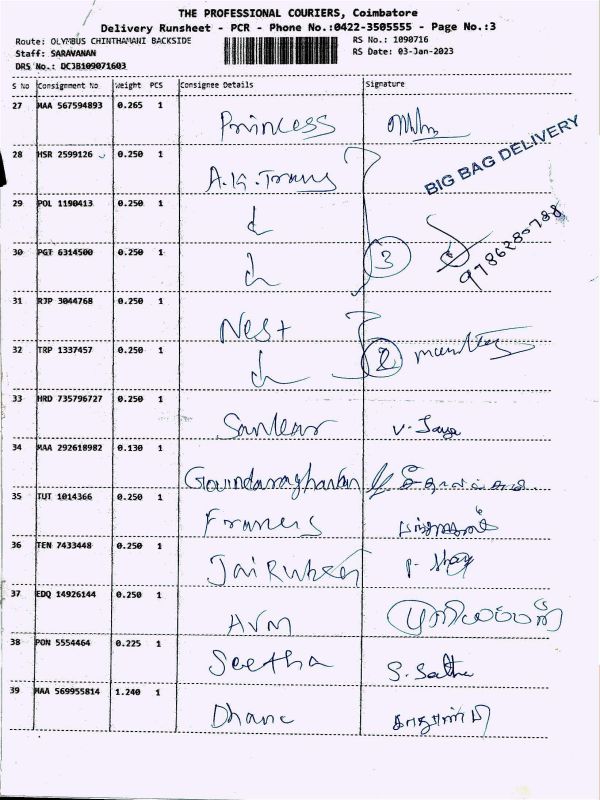 THE PROFESSIONAL COURIERS, Coimbatore
Delivery Runsheet - PCR - Phone No.:0422-3505555 - Page No.:3
Route: OLYMBUS CHINTHAMANI BACKSIDE
RS No.: 1090716
Staff: SARAVANAN
RS Date: 03-Jan-2023
DRS No.: DCJB109071603
S No Consignment No Weight PCS Consignee Details Signature
27 MAA 567594893 0.265 1 Princess
BIG BAG DELIVERY
28 HSR 2599126 0.250 1 A.K.Trans
29 POL 1190413 0.250 1
9786280788
30 PGT 6314500 0.250 1 3
31 RJP 3044768 0.250 1 Nest
32 TRP 1337457 0.250 1 2
33 HRD 735796727 0.250 1 V. Jaya
34 MAA 292618982 0.130 1
35 TUT 1014366 0.250 1 Francis
36 TEN 7433448 0.250 1
37 EDQ 14926144 0.250 1 AVM
38 PON 5554464 0.225 1 Seetha
39 MAA 569955814 1.240 1